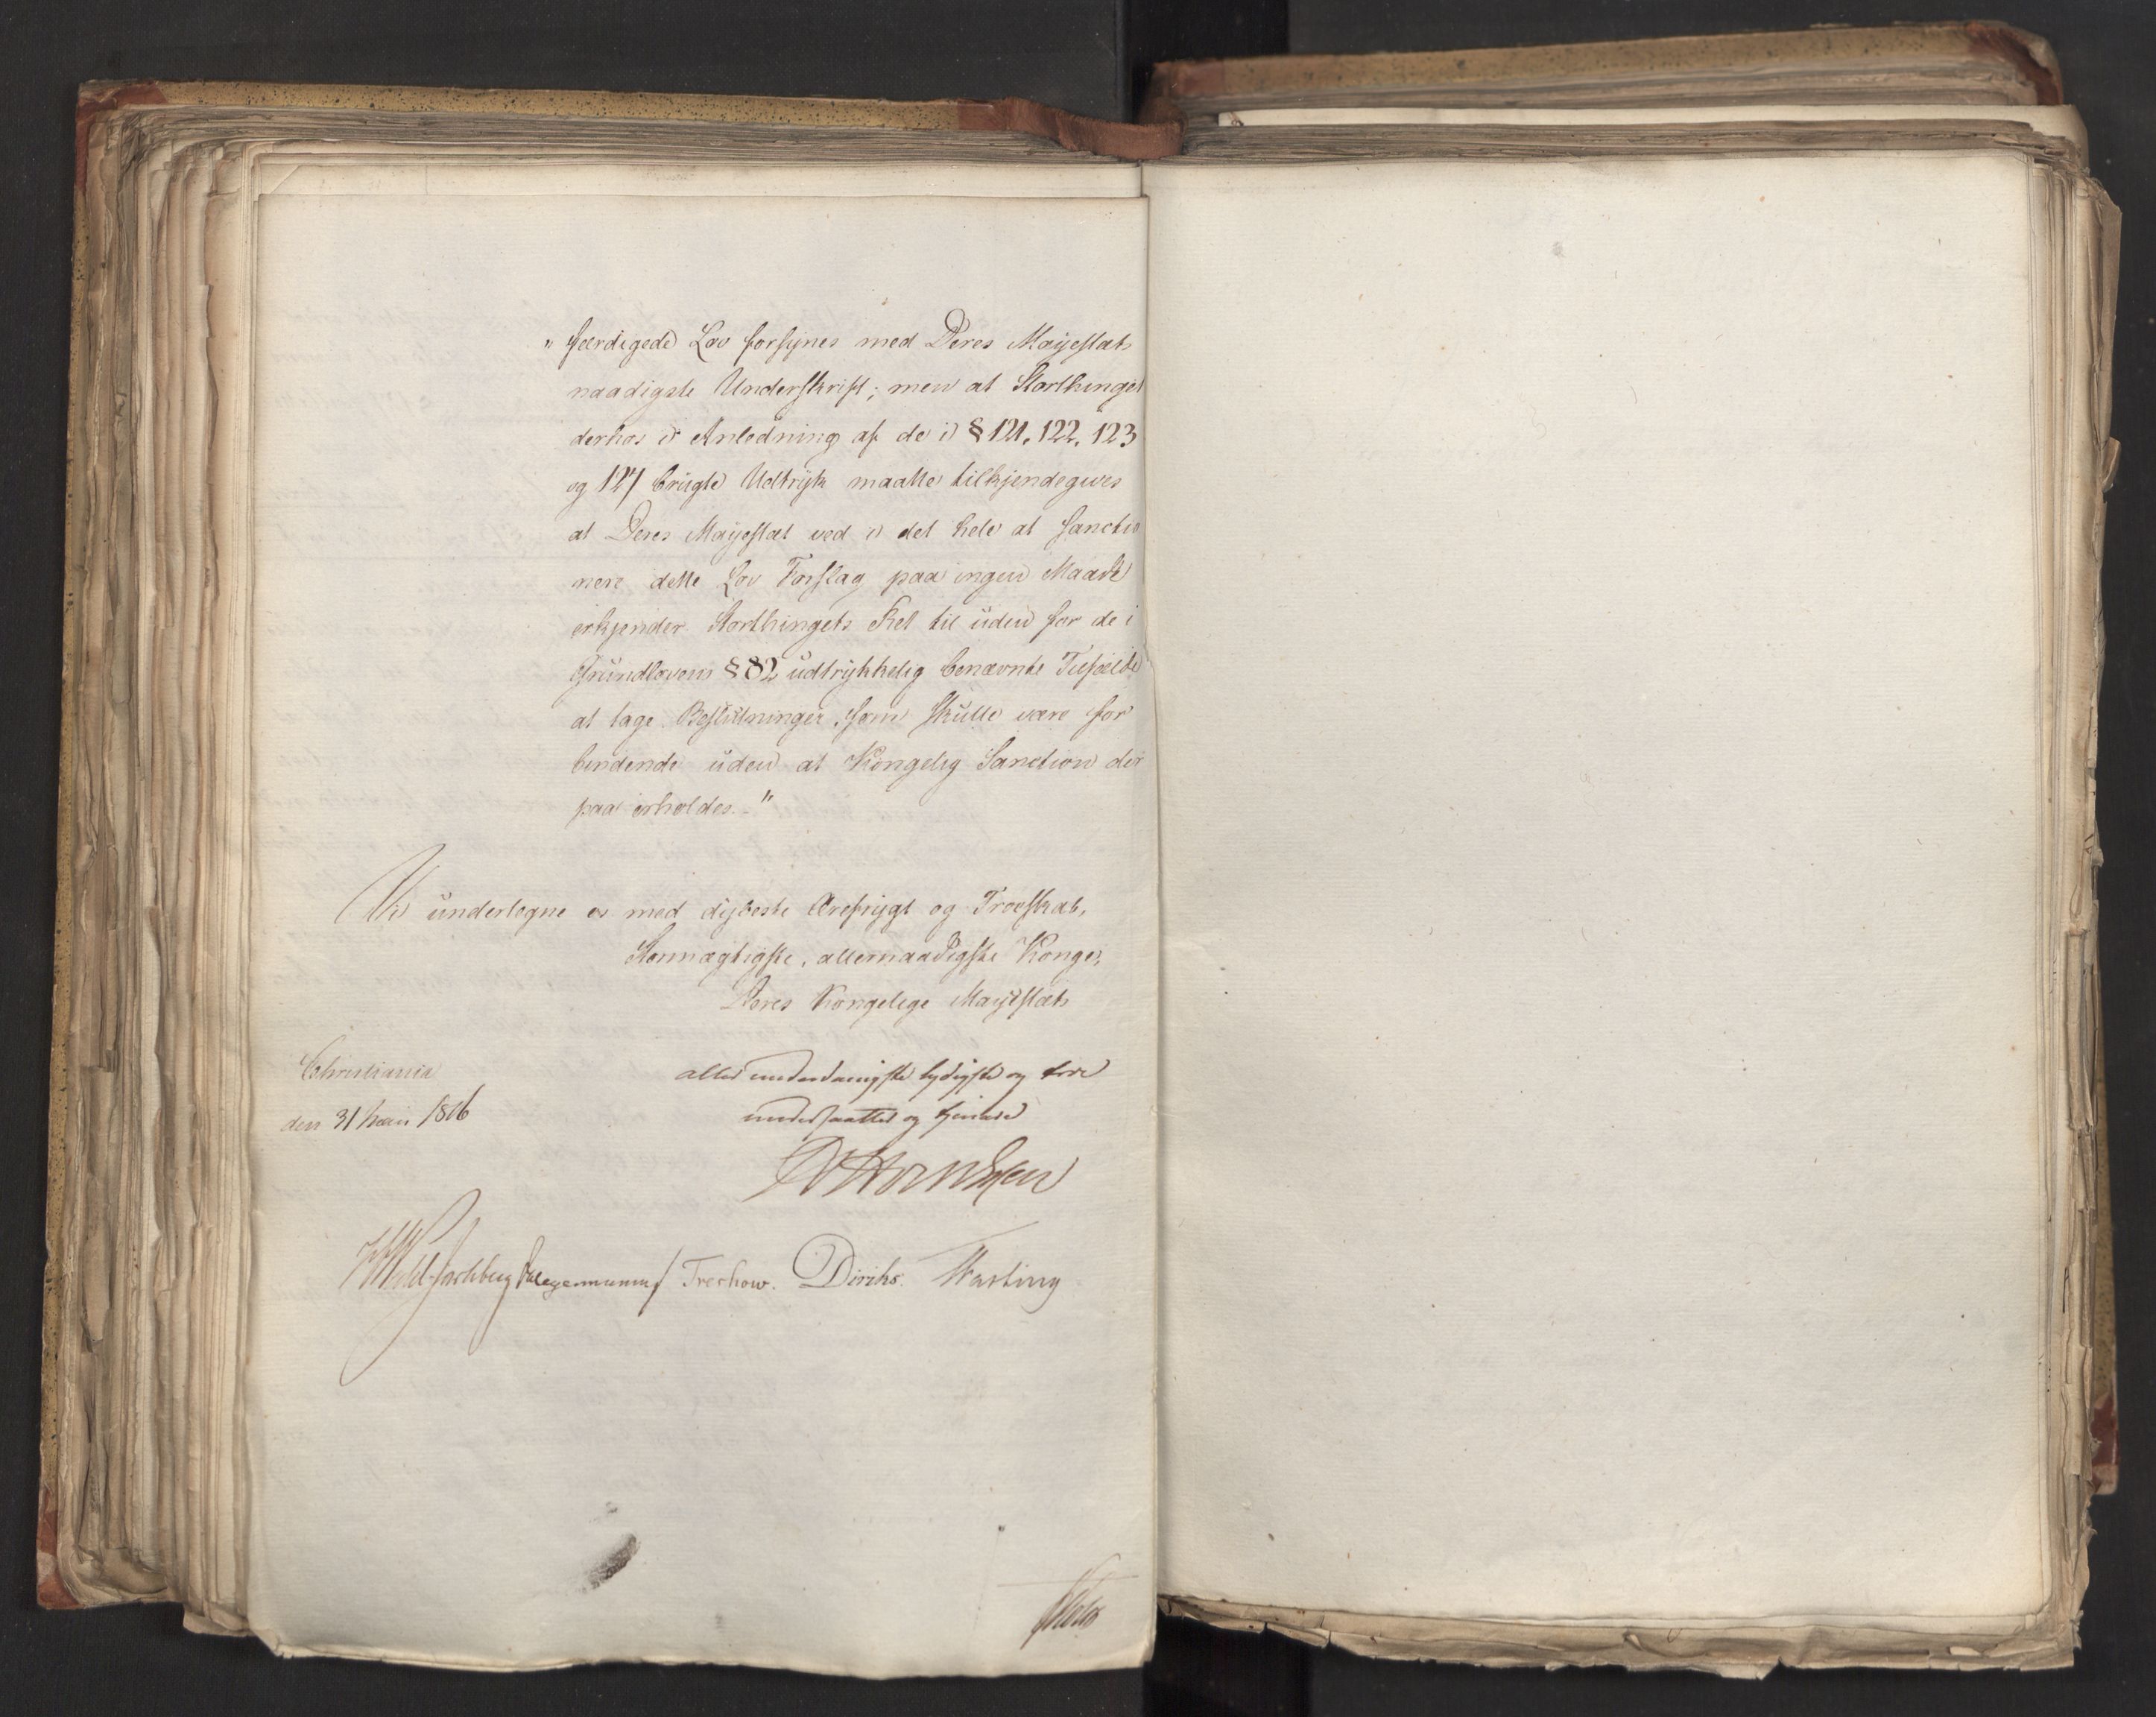 " færdigede Lov forsynes med Deres Mayestæts
naadigste Underskrift; men at Storthinget
derhos i Anledning af de i § 121, 122, 123
og 127 brugte Udtryk maatte tilkjendegives
at Deres Mayestæt ved i det hele at sanctio
nere dette Lov Forslag paa ingen Maade
erkjender Storthingets Ret til uden for de i
Grundlovens § 82 udtrykkelig benævnte Tilfælde
at tage Beslutninger, som skulle være for
bindende uden at Kongelig Sanction der
paa erholdes. "
Vi undertegne os med dybeste Ærefrygt og Troeskab,
Stormægtigste, allernaadigste Konge,
Deres Kongelige Mayestæts
Christiania
den 31 1816
allerunderdanigste lydigste og troe
undersaatter og tjenere
Treschow. Diriks. Fasting